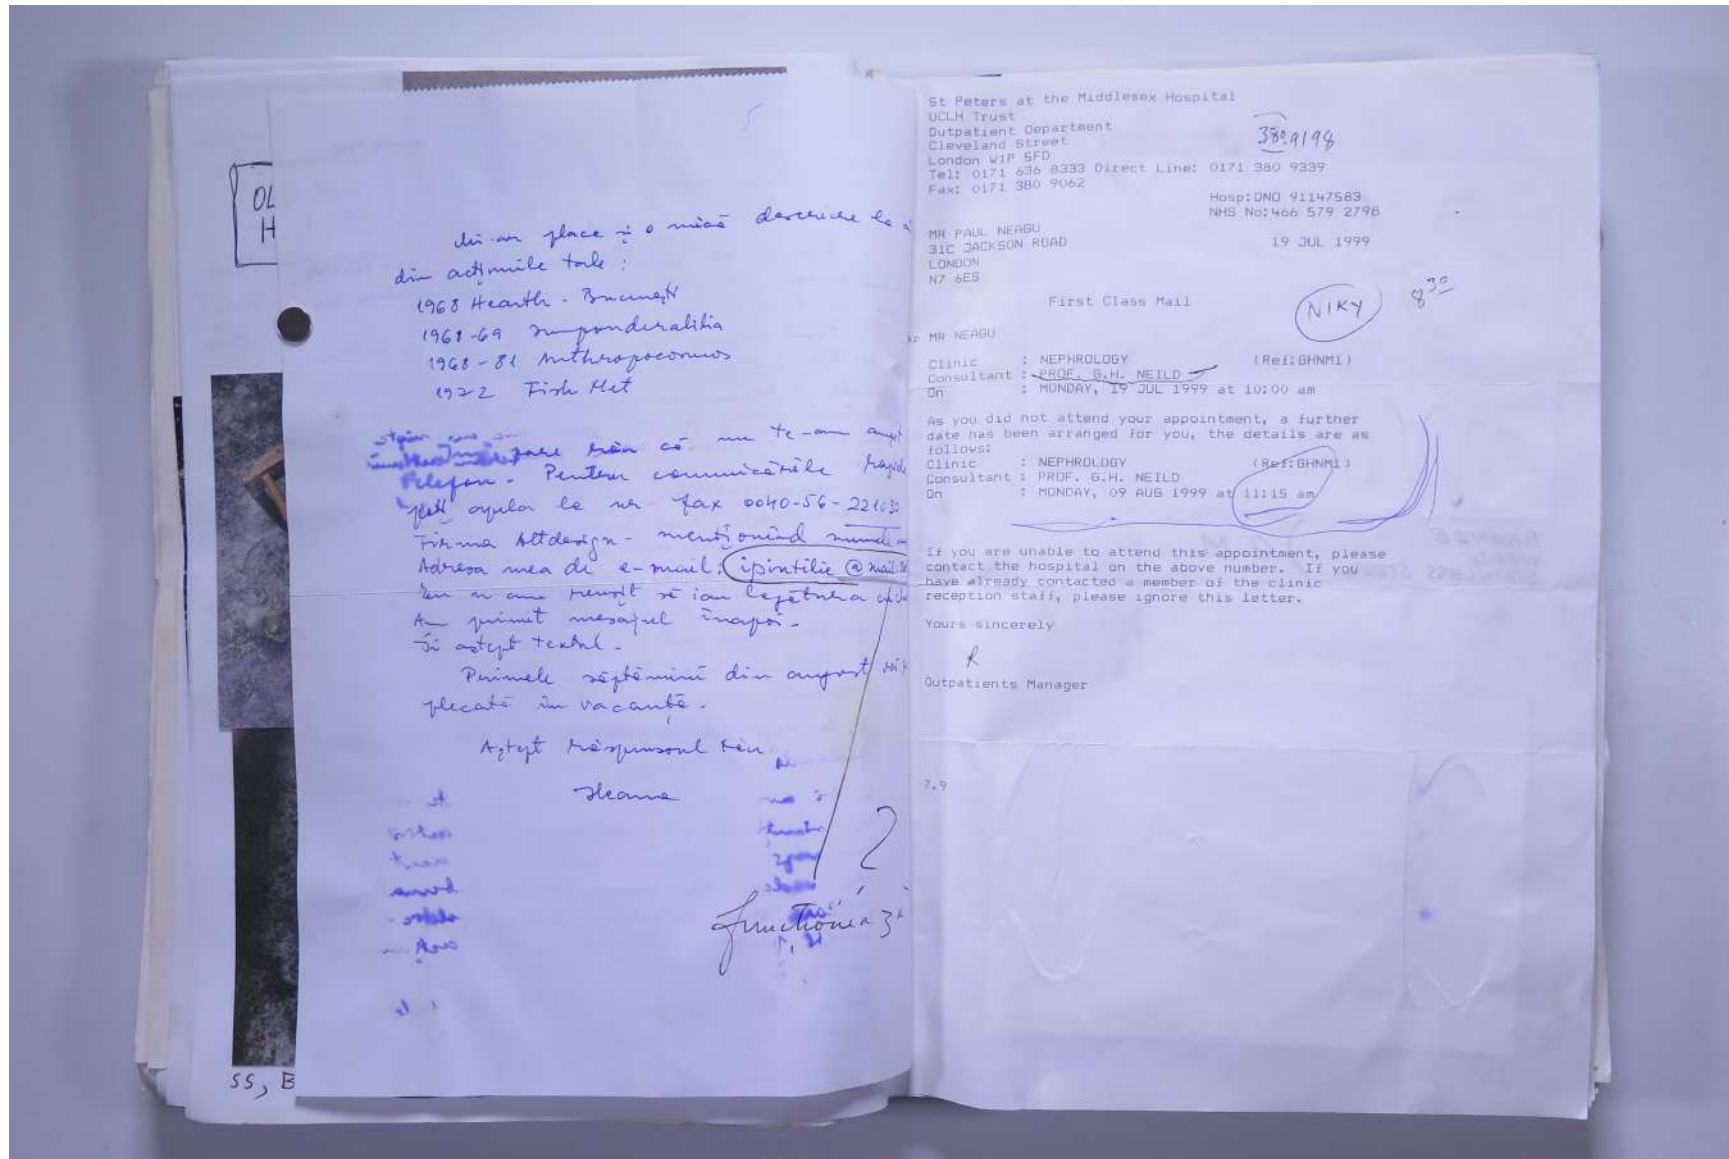 5
OL
H
Mi-ar place și o mică descriere la
din acțiunile tale :
1968 Hearth - București
1968-69 Imponderabilia
1968-81 Anthropocosmos
1972 Fish Net
pare rău că nu te-am
Telefon. Pentru comunicările rapide
poți apela la nr fax 0040-56-221030
Firma Altdesign - menționînd numele
Adresa mea de e-mail: ipintilie @ mail.
Eu n-am reușit să iau legătura cu
Am primit mesajul înapoi.
Îți aștept textul.
Primele săptămîni din august
plecată în vacanță.
Aștept răspunsul tău
Ileana
SS, B
St Peters at the Middlesex Hospital
UCLH Trust
Outpatient Department
Cleveland Street
London W1P 5FD
Tel: 0171 636 8333 Direct Line: 0171 380 9339
Fax: 0171 380 9062
380 9198
Hosp:DNO 91147583
NHS No:466 579 2798
MR PAUL NEAGU
31C JACKSON ROAD
LONDON
N7 6ES
19 JUL 1999
First Class Mail
NIKY 8 30
MR NEAGU
Clinic : NEPHROLOGY (Ref:GHNM1)
Consultant : PROF. G.H. NEILD
On : MONDAY, 19 JUL 1999 at 10:00 am
As you did not attend your appointment, a further
date has been arranged for you, the details are as
follows:
Clinic : NEPHROLOGY (Ref:GHNM1)
Consultant : PROF. G.H. NEILD
On : MONDAY, 09 AUG 1999 at 11:15 am
If you are unable to attend this appointment, please
contact the hospital on the above number. If you
have already contacted a member of the clinic
reception staff, please ignore this letter.
Yours sincerely
R
Outpatients Manager
7.9